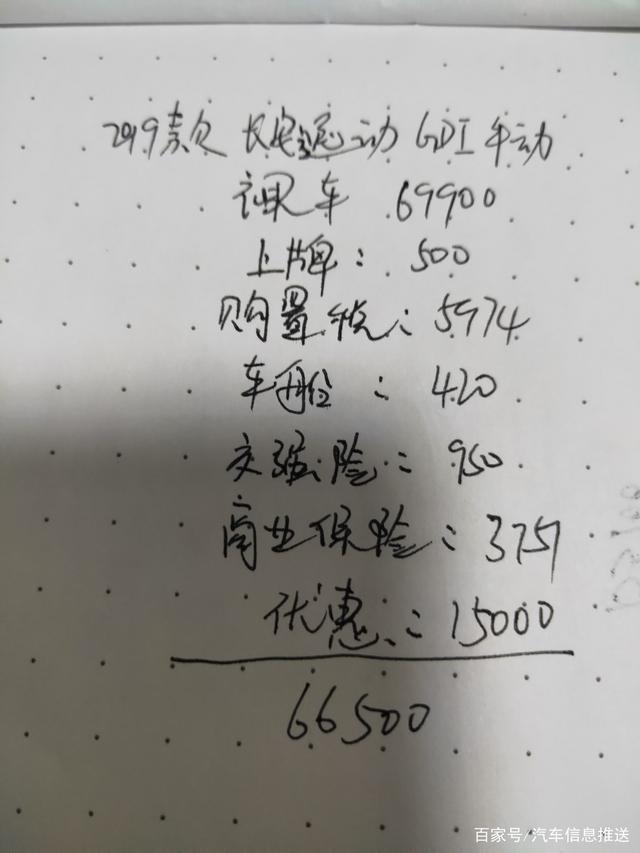 2019款 长安逸动 GDI 手动
裸车 69900
上牌: 500
购置税: 5974
车船: 420
交强险: 950
商业保险: 3757
优惠: 15000
66500
百家号/汽车信息推送